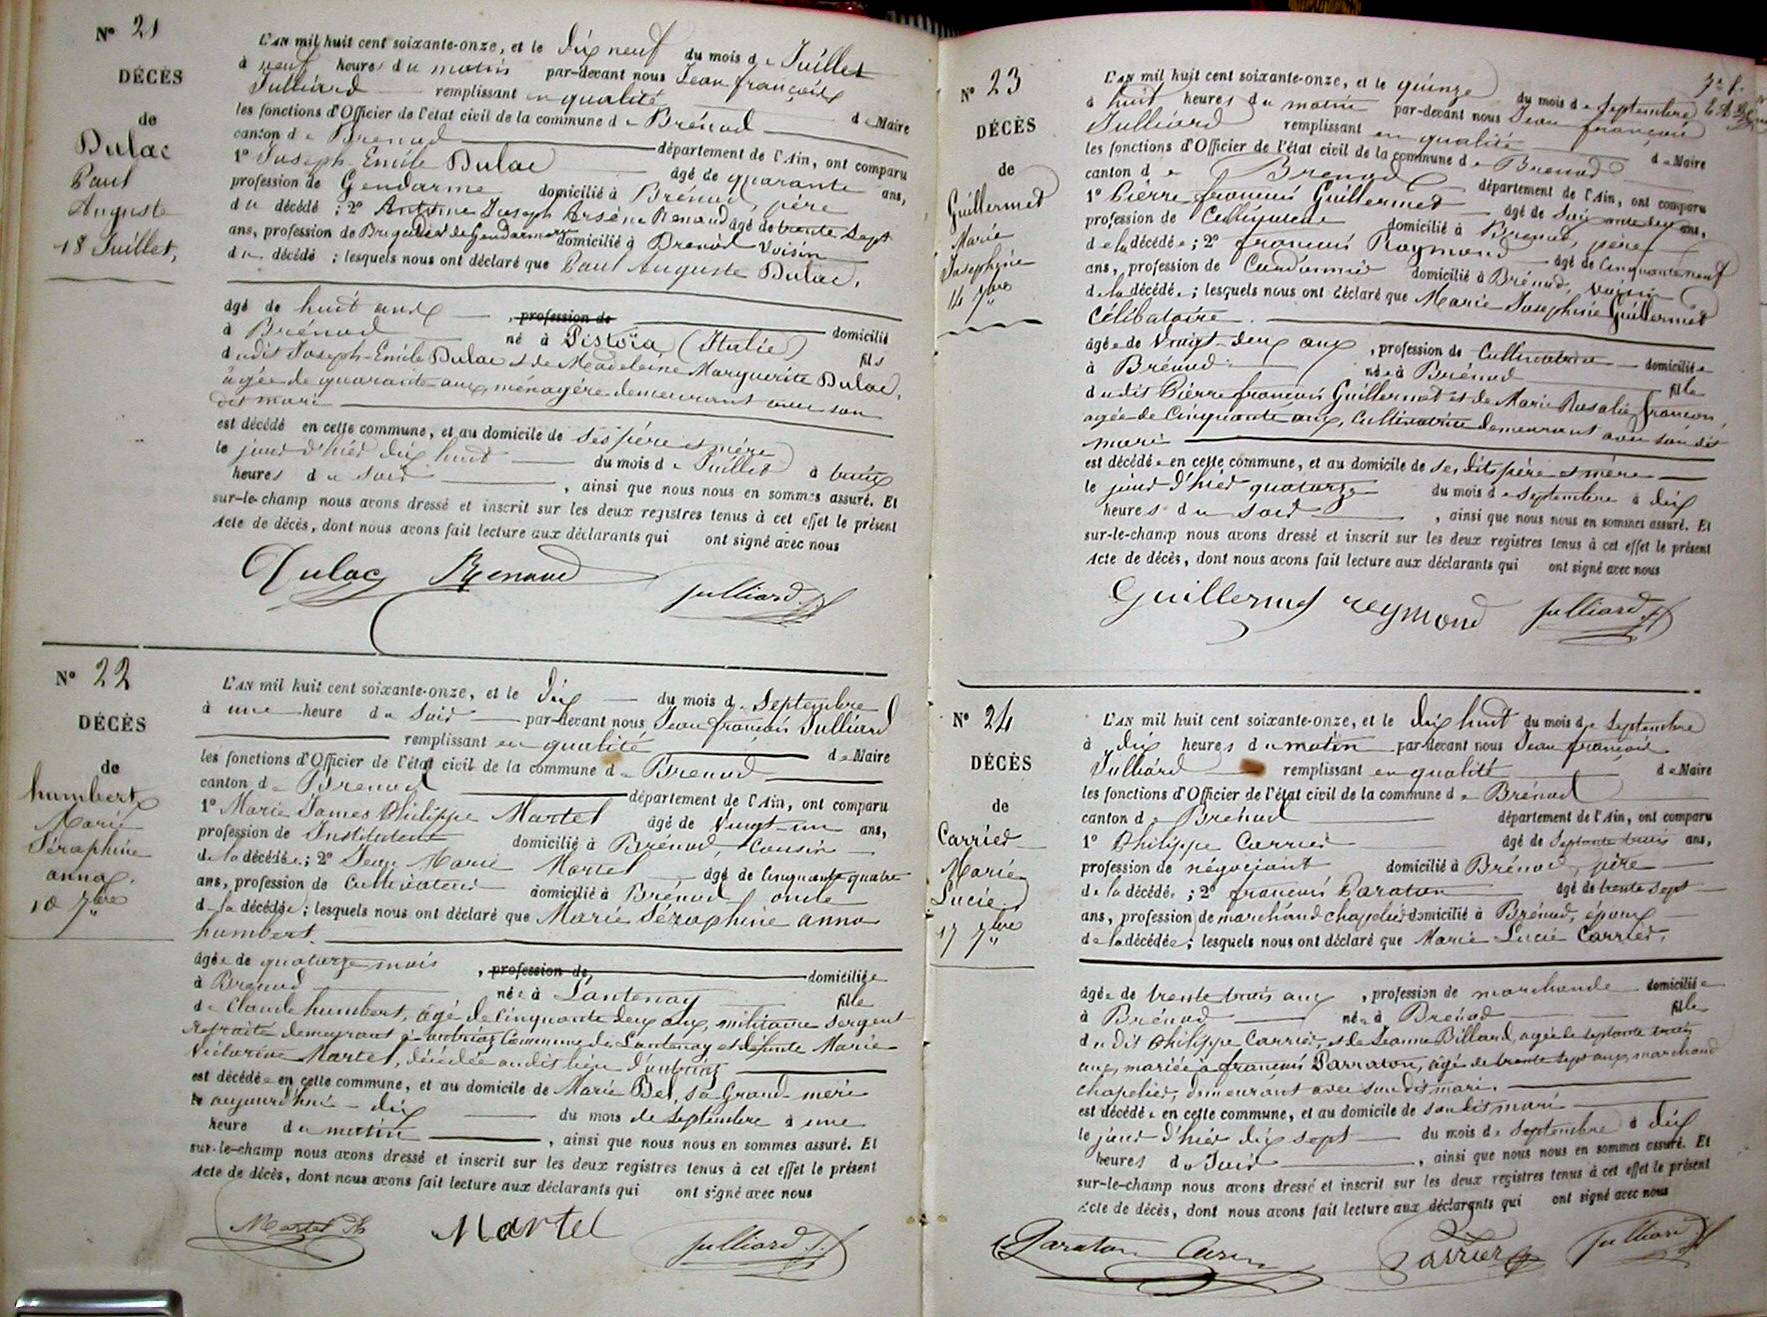 N° 21
DÉCÈS
de
Dulac
Paul
Auguste
18 Juillet,
L'AN mil huit cent soixante-onze, et le dix neuf du mois de Juillet
à neuf heures du matin par-devant nous Jean françois
Julliard remplissant en qualité de Maire
les fonctions d'Officier de l'état civil de la commune de Brénod
canton de Brenod département de l'Ain, ont comparu
1° Joseph-Emile Dulac âgé de quarante ans,
profession de Gendarme domicilié à Brénod, père
du décédé ; 2° Antoine Joseph Arsène Renaud âgé de trente sept
ans, profession de Brigadier de Gendarmerie domicilié à Brénod Voisin
du décédé ; lesquels nous ont déclaré que Paul Auguste Dulac,
âgé de huit ans , profession de domicilié
à Brénod né à Pistoïa (Italie) fils
dudit Joseph-Emile Dulac et de Madeleine Marguerite Dulac,
âgée de quarante ans, ménagère demeurant avec son
dit mari
est décédé en cette commune, et au domicile de ses père et mère
le jour d'hier dix huit du mois de Juillet à
heures du soir , ainsi que nous nous en sommes assuré. Et
sur-le-champ nous avons dressé et inscrit sur les deux registres tenus à cet effet le présent
Acte de décès, dont nous avons fait lecture aux déclarants qui ont signé avec nous
Dulac Renaud Julliard
N° 22
DÉCÈS
de
humbert
Marie
Séraphine
anna.
10 7bre
L'AN mil huit cent soixante-onze, et le dix du mois de Septembre
à une heure du soir par-devant nous Jean françois Julliard
remplissant en qualité de Maire
les fonctions d'Officier de l'état civil de la commune de Brenod
canton de Brenod département de l'Ain, ont comparu
1° Marie James Philippe Martel âgé de Vingt-un ans,
profession de Instituteur domicilié à Brénod, Cousin
de la décédée ; 2° Jean Marie Martel âgé de Cinquante quatre
ans, profession de Cultivateur domicilié à Brénod oncle
de la décédée ; lesquels nous ont déclaré que Marie Séraphine anna
humbert.
âgée de quatorze mois , profession de, domiciliée
à Brenod née à Lantenay fille
de Claude humbert, âgé de Cinquante deux ans, militaire sergent
retraité demeurant à Commune de Lantenay et défunte Marie
Victorine Martel, décédée audit lieu
est décédée en cette commune, et au domicile de Marie Bel, sa Grand-mère
le aujourd'hui - dix du mois de Septembre à une
heure du matin , ainsi que nous nous en sommes assuré. Et
sur-le-champ nous avons dressé et inscrit sur les deux registres tenus à cet effet le présent
Acte de décès, dont nous avons fait lecture aux déclarants qui ont signé avec nous
Martel Martel Julliard
N° 23
DÉCÈS
de
Guillermet
Marie
Josephine
14 7bre
L'AN mil huit cent soixante-onze, et le quinze du mois de Septembre
à huit heures du matin par-devant nous Jean françois
Julliard remplissant en qualité de Maire
les fonctions d'Officier de l'état civil de la commune de Brenod
canton de Brenod département de l'Ain, ont comparu
1° Pierre françois Guillermet âgé de ans,
profession de Cultivateur domicilié à Brenod, père
de la décédée ; 2° françois Raymond âgé de Cinquante neuf
ans, profession de Cordonnier domicilié à Brénod, voisin
de la décédée ; lesquels nous ont déclaré que Marie Josephine Guillermet
Célibataire.
âgée de Vingt-deux ans , profession de Cultivatrice domiciliée
à Brénod née à Brénod fille
dudit Pierre françois Guillermet et de Marie Rosalie françon,
agée de Cinquante ans, Cultivatrice demeurant avec son dit
mari
est décédée en cette commune, et au domicile de ses dits père et mère
le jour d'hier quatorze du mois de septembre à dix
heures du soir , ainsi que nous nous en sommes assuré. Et
sur-le-champ nous avons dressé et inscrit sur les deux registres tenus à cet effet le présent
Acte de décès, dont nous avons fait lecture aux déclarants qui ont signé avec nous
Guillermet reymond Julliard
N° 24
DÉCÈS
de
Carrier
Marie
Lucie
17 7bre
L'AN mil huit cent soixante-onze, et le dix huit du mois de Septembre
à dix heures du matin par-devant nous Jean françois
Julliard remplissant en qualité de Maire
les fonctions d'Officier de l'état civil de la commune de Brénod
canton de Brenod département de l'Ain, ont comparu
1° Philippe Carrier âgé de Septante trois ans,
profession de négociant domicilié à Brénod, père
de la décédée ; 2° françois Paraton âgé de trente sept
ans, profession de marchand chapelier domicilié à Brénod, époux
de la décédée ; lesquels nous ont déclaré que Marie Lucie Carrier,
âgée de trente trois ans , profession de marchande domiciliée
à Brénod née à Brénod fille
dudit Philippe Carrier, et de Jeanne Billard, agée de septante trois
ans, mariée à françois Parraton, âgé de trente sept ans, marchand
chapelier, demeurant avec son dit mari.
est décédée en cette commune, et au domicile de son dit mari
le jour d'hier dix sept du mois de Septembre à dix
heures du soir , ainsi que nous nous en sommes assuré. Et
sur-le-champ nous avons dressé et inscrit sur les deux registres tenus à cet effet le présent
Acte de décès, dont nous avons fait lecture aux déclarants qui ont signé avec nous
Paraton Carrier Julliard